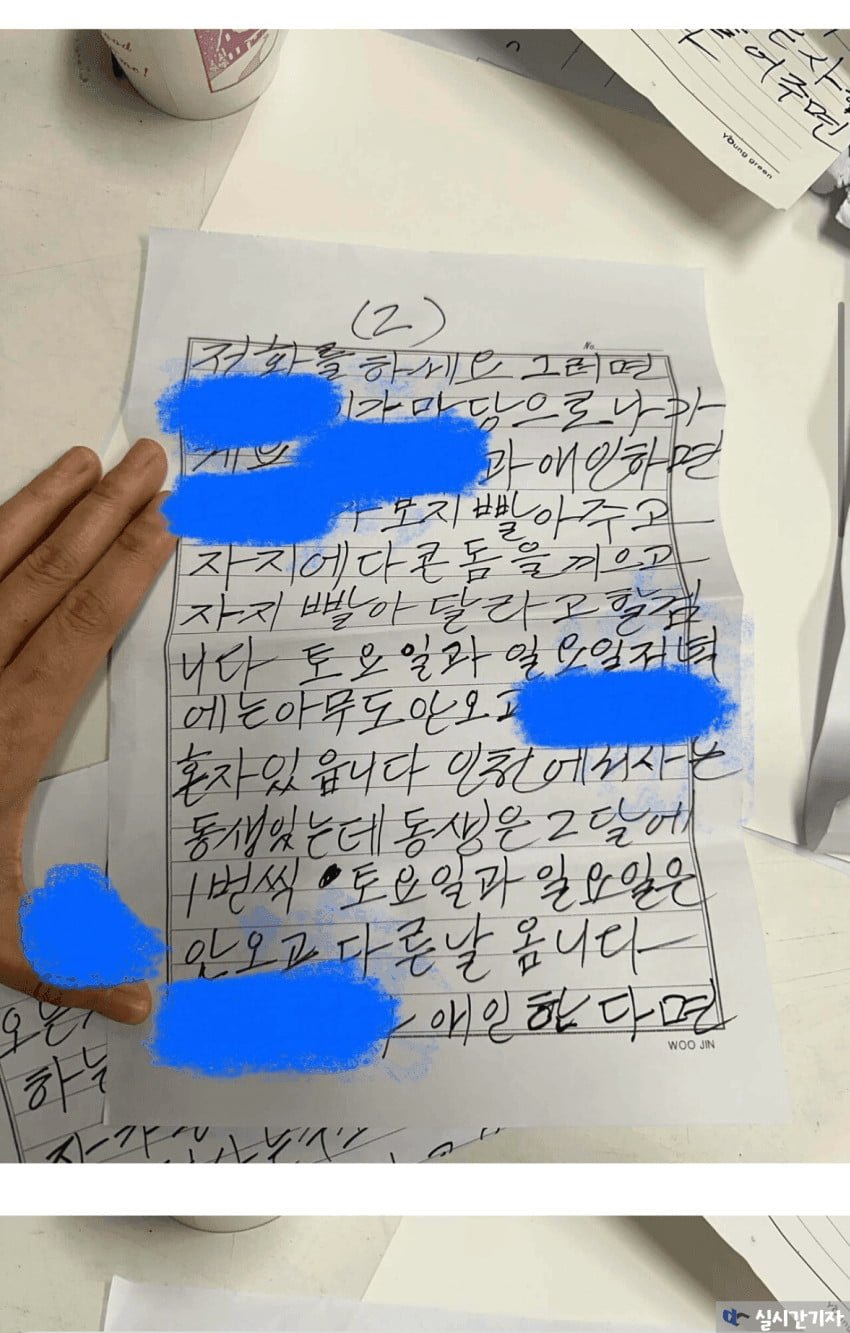 (2)
No.
저화를 하세요 그러면
가 마담으로 나가
게요 과 애인하면
보지 빨아 주고
자지에다 콘돔을 끼우고
자지 빨아 달라고 할겁
니다 토요일과 일요일저녁
에는 아무도 안오고
혼자 있읍니다 인천에서 사는
동생있는데 동생은 2달에
1번씩 토요일과 일요일은
안오고 다른날 옵니다
애인 한다면
WOO JIN
어주면
young green
오는
하는
실시간기자